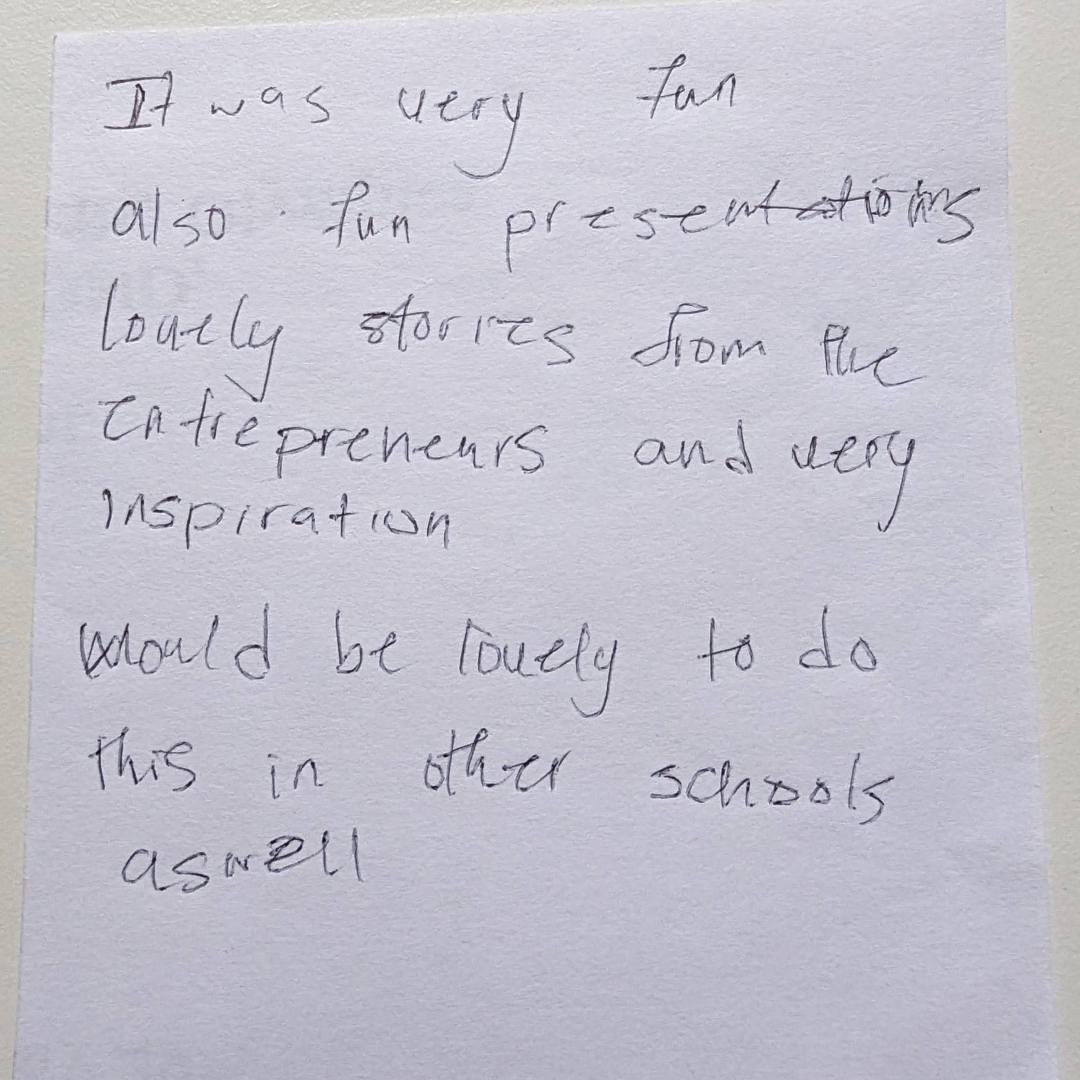 It was very fun
also fun presentations
lovely storries from the
Entrepreneurs and very
inspiration
would be lovely to do
this in other schools
aswell